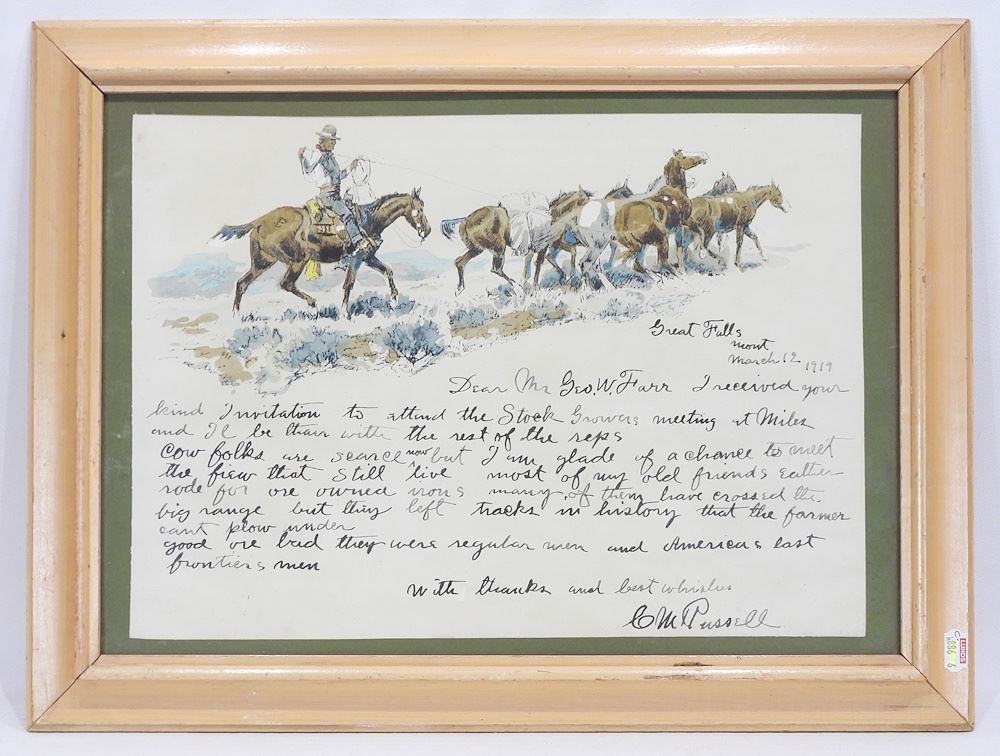 Great Falls
Mont
March 12 1919
Dear Mr Geo. W. Farr I received your
kind Invitation to attend the Stock Growers meeting at Miles
and Il be thair with the rest of the reps
Cow folks are scarce now but I am glade of a chance to meet
the fiew that still live most of my old friends eather
rode for ore owned irons many of them have crossed the
big range but they left tracks in history that the farmer
cant plow under
good ore bad they were regular men and Americas last
frontiers men
With thanks and best whishes
C M Russell